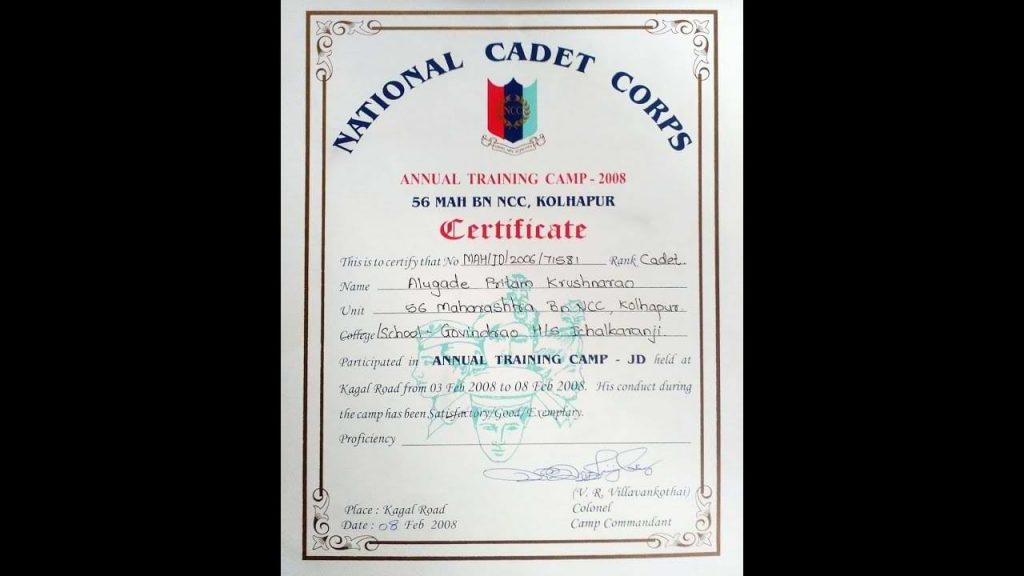 NATIONAL CADET CORPS
NCC
ANNUAL TRAINING CAMP - 2008
56 MAH BN NCC, KOLHAPUR
Certificate
This is to certify that No MAH/JD/2006/71581 Rank Cadet.
Name Alugade Pritam Krushnarao
Unit 56 Maharashtra Bn NCC, Kolhapur.
College/School - Govindrao H/S Ichalkaranji
Participated in ANNUAL TRAINING CAMP - JD held at
Kagal Road from 03 Feb 2008 to 08 Feb 2008. His conduct during
the camp has been Satisfactory/Good/Exemplary.
Proficiency
(V. R. Villavankothai)
Place : Kagal Road Colonel
Date : 08 Feb 2008 Camp Commandant